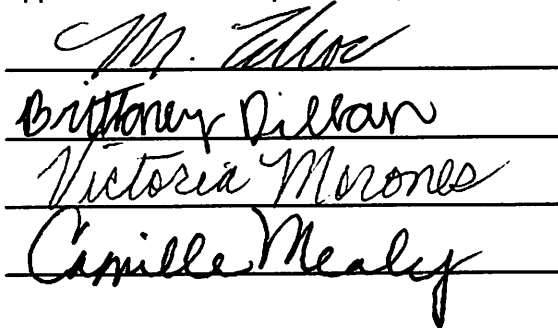 M.
Brittaney Dillan
Victoria Morones
Camille Mealy